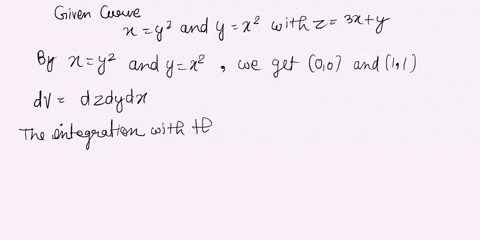 Given Curve
x = y² and y = x² with z = 3x+y
By x = y² and y = x², we get (0,0) and (1,1)
dV = dzdydx
The integration with th